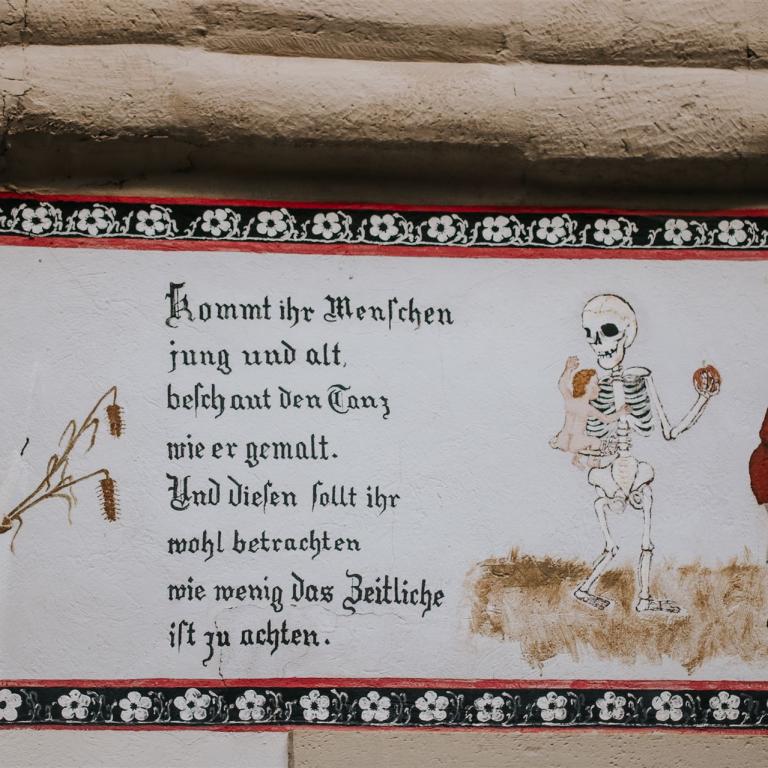 Kommt ihr Menſchen
jung und alt,
beſchaut den Tanz
wie er gemalt.
Und dieſen ſollt ihr
wohl betrachten
wie wenig das Zeitliche
iſt zu achten.